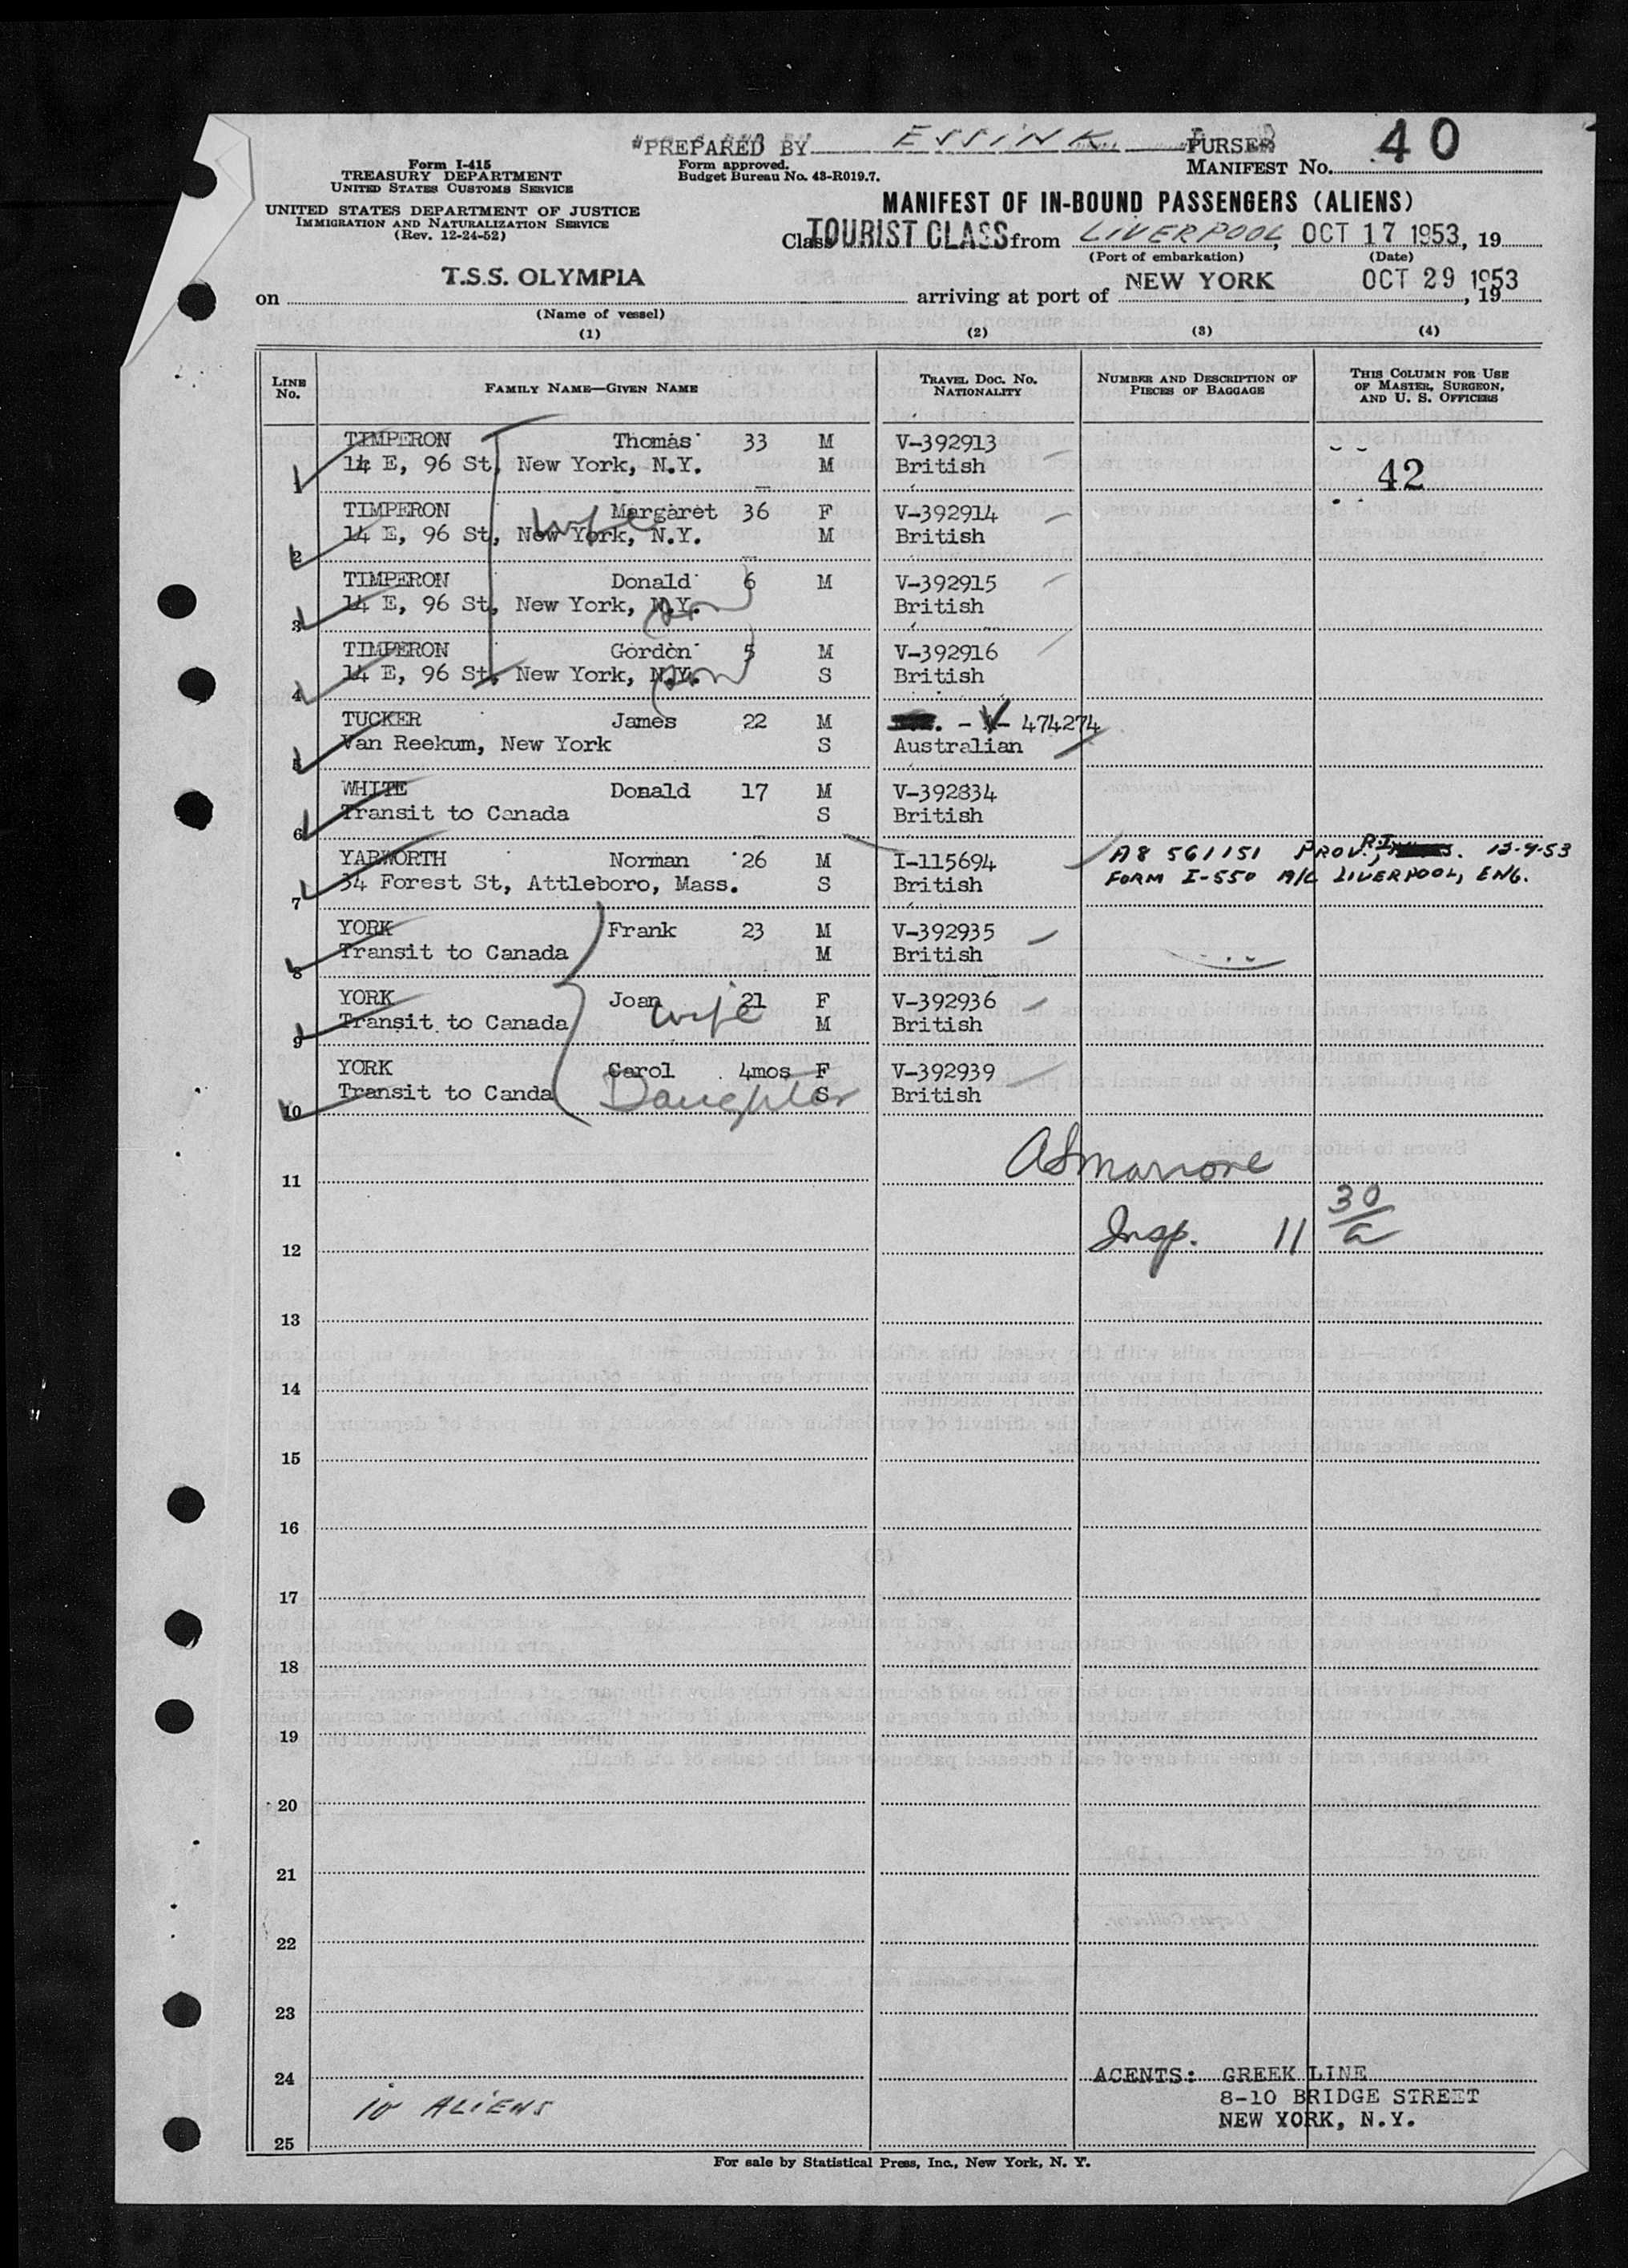 "PREPARED BY ESSINK PURSER
Form I-415
TREASURY DEPARTMENT
UNITED STATES CUSTOMS SERVICE
UNITED STATES DEPARTMENT OF JUSTICE
IMMIGRATION AND NATURALIZATION SERVICE
(Rev. 12-24-52)
Form approved.
Budget Bureau No. 43-R019.7.
MANIFEST No. 40
MANIFEST OF IN-BOUND PASSENGERS (ALIENS)
Class TOURIST CLASS from LIVERPOOL, OCT 17 1953, 19
(Port of embarkation) (Date)
on T.S.S. OLYMPIA arriving at port of NEW YORK OCT 29 1953, 19
(Name of vessel)
(1) (2) (3) (4)
LINE No. FAMILY NAME—GIVEN NAME TRAVEL DOC. No. NATIONALITY NUMBER AND DESCRIPTION OF PIECES OF BAGGAGE THIS COLUMN FOR USE OF MASTER, SURGEON, AND U. S. OFFICERS
TIMPERON Thomas 33 M V-392913
1 14 E, 96 St, New York, N.Y. M British 42
TIMPERON Margaret 36 F V-392914
2 14 E, 96 St, New York, N.Y. M British
wife
TIMPERON Donald 6 M V-392915
3 14 E, 96 St, New York, N.Y. British
(son)
TIMPERON Gordon 5 M V-392916
4 14 E, 96 St, New York, N.Y. S British
(son)
TUCKER James 22 M - V- 474274
5 Van Reekum, New York S Australian
WHITE Donald 17 M V-392834
6 Transit to Canada S British
YARWORTH Norman 26 M I-115694 A8 561151 PROV. R.I. 12-9-53
7 34 Forest St, Attleboro, Mass. S British FORM I-550 A/C LIVERPOOL, ENG.
YORK Frank 23 M V-392935
8 Transit to Canada M British
YORK Joan 21 F V-392936
9 Transit to Canada M British
wife
YORK Carol 4mos F V-392939
10 Transit to Canda S British
Daughter
11
12 Insp. 11 30/a
13
14
15
16
17
18
19
20
21
22
23
24 AGENTS: GREEK LINE
8-10 BRIDGE STREET
10 ALIENS
NEW YORK, N.Y.
25
For sale by Statistical Press, Inc., New York, N. Y.